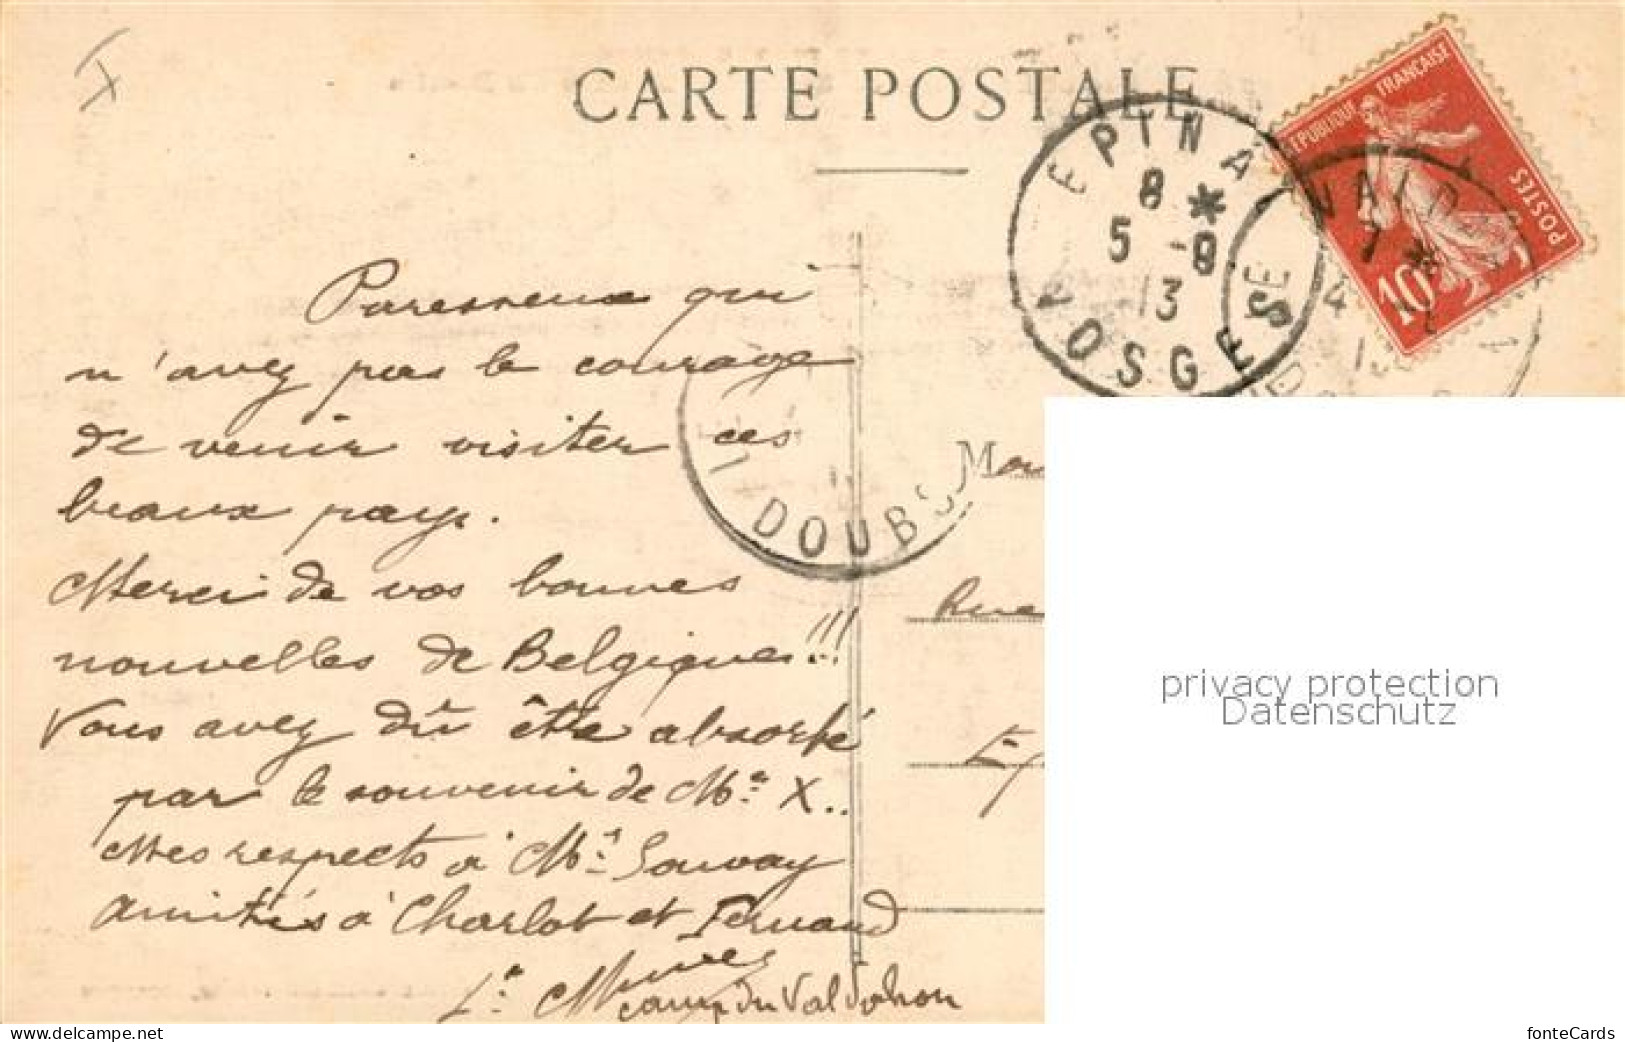 CARTE POSTALE
EPINA
8 *
5 -8
13
VOSGES
REPUBLIQUE FRANÇAISE
POSTES
10
VALD
7 *
4
13
DOUBS
Paresseux qui
n'avez pas le courage
de venir visiter ces
beaux pays.
Merci de vos bonnes
nouvelles de Belgique!!!
Vous avez dû être absorbé
par le souvenir de Me X..
Mes respects à Mr Souvay
amitiés à Charlot et Fernand
camp du Valdahon
M
Rue
privacy protection
Datenschutz
www.delcampe.net
fonteCards